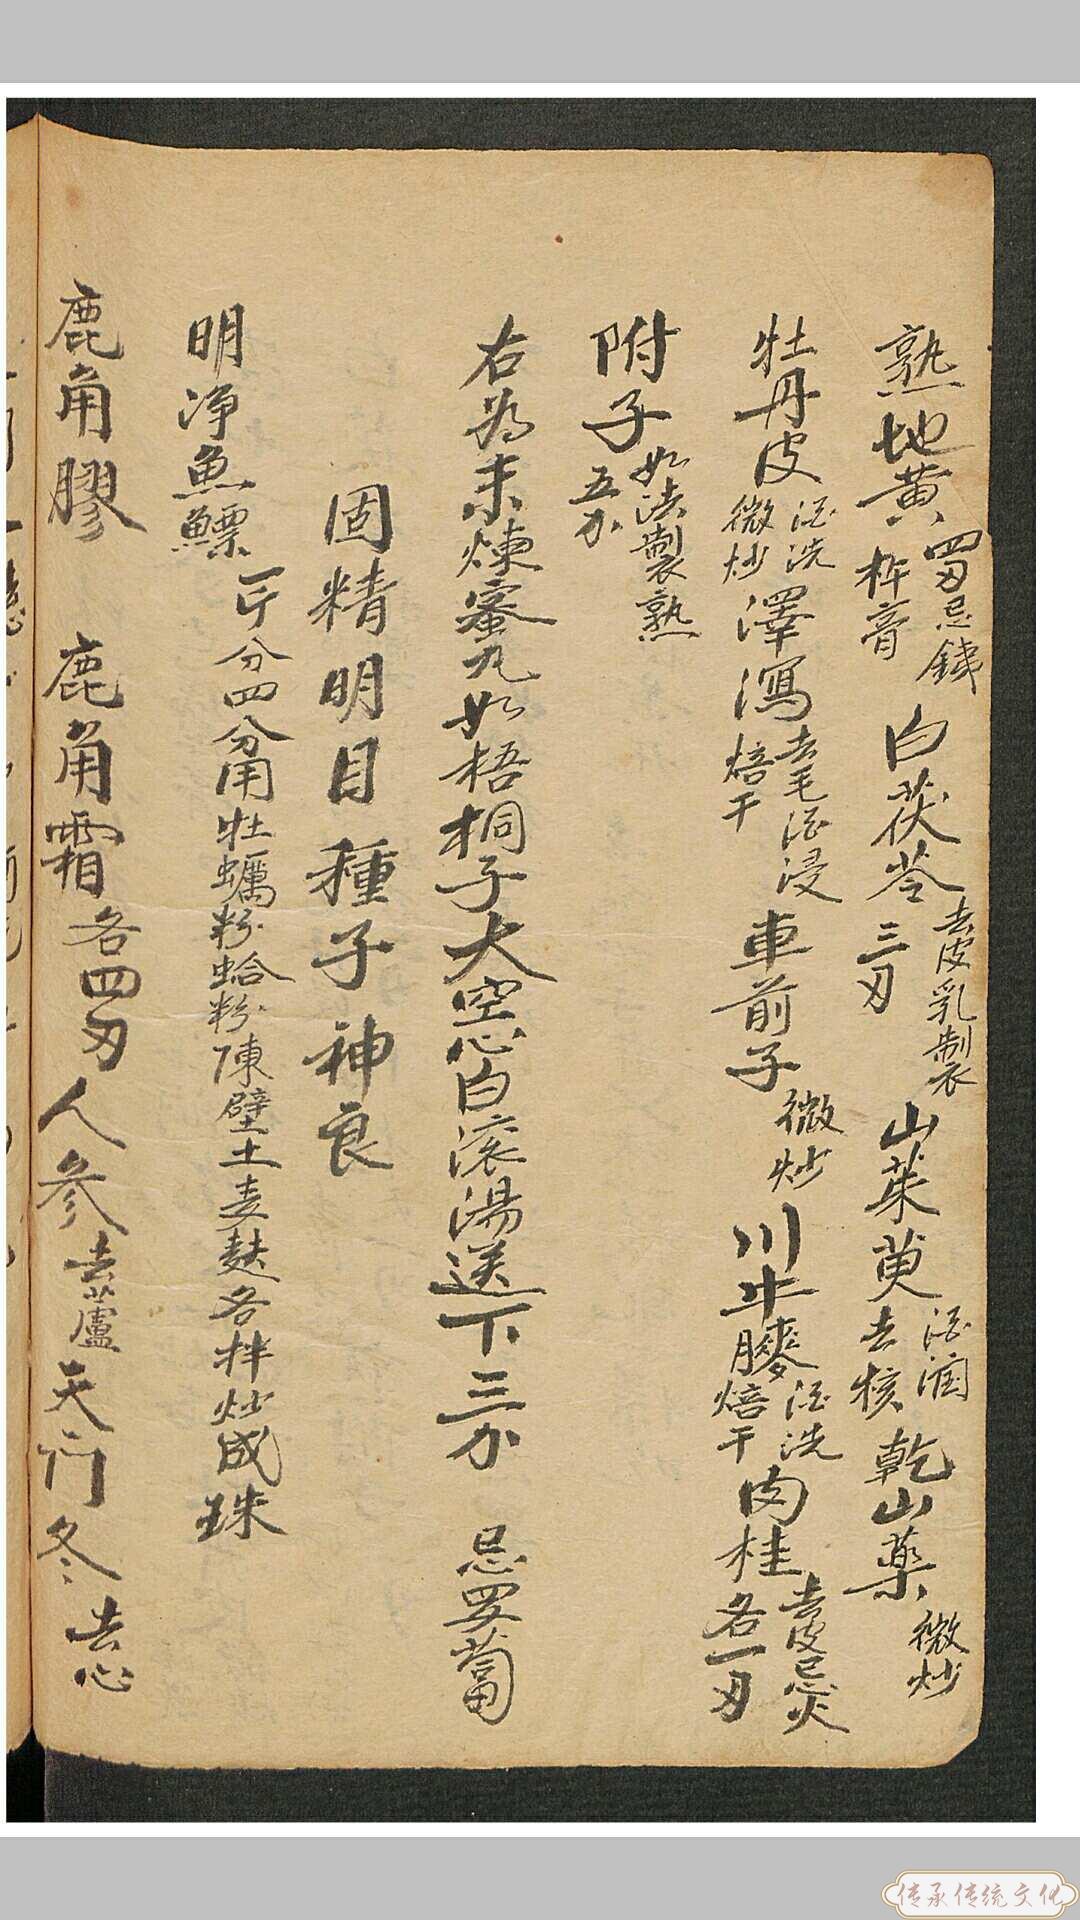 熟地黄四刄忌鉄杵膏 白茯苓去皮乳製三刄 山茱萸酒润去核 乾山薬微炒
牡丹皮酒洗微炒 澤瀉去毛酒浸焙干 車前子微炒 川牛膝酒洗焙干 肉桂去皮忌火各一刄
附子如法製熟五分
右為末煉蜜丸如梧桐子大空心白滚湯送下三分 忌蘿蔔
固精明目種子神良
明净魚鰾一斤分四分用牡蠣粉蛤粉陳壁土麦麩各拌炒成珠
鹿角膠 鹿角霜各四刄人参去蘆天门冬去心
传承传统文化